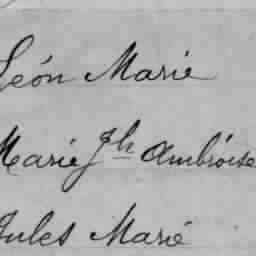 Léon Marie
Marie Jh Ambroise
Jules Marie